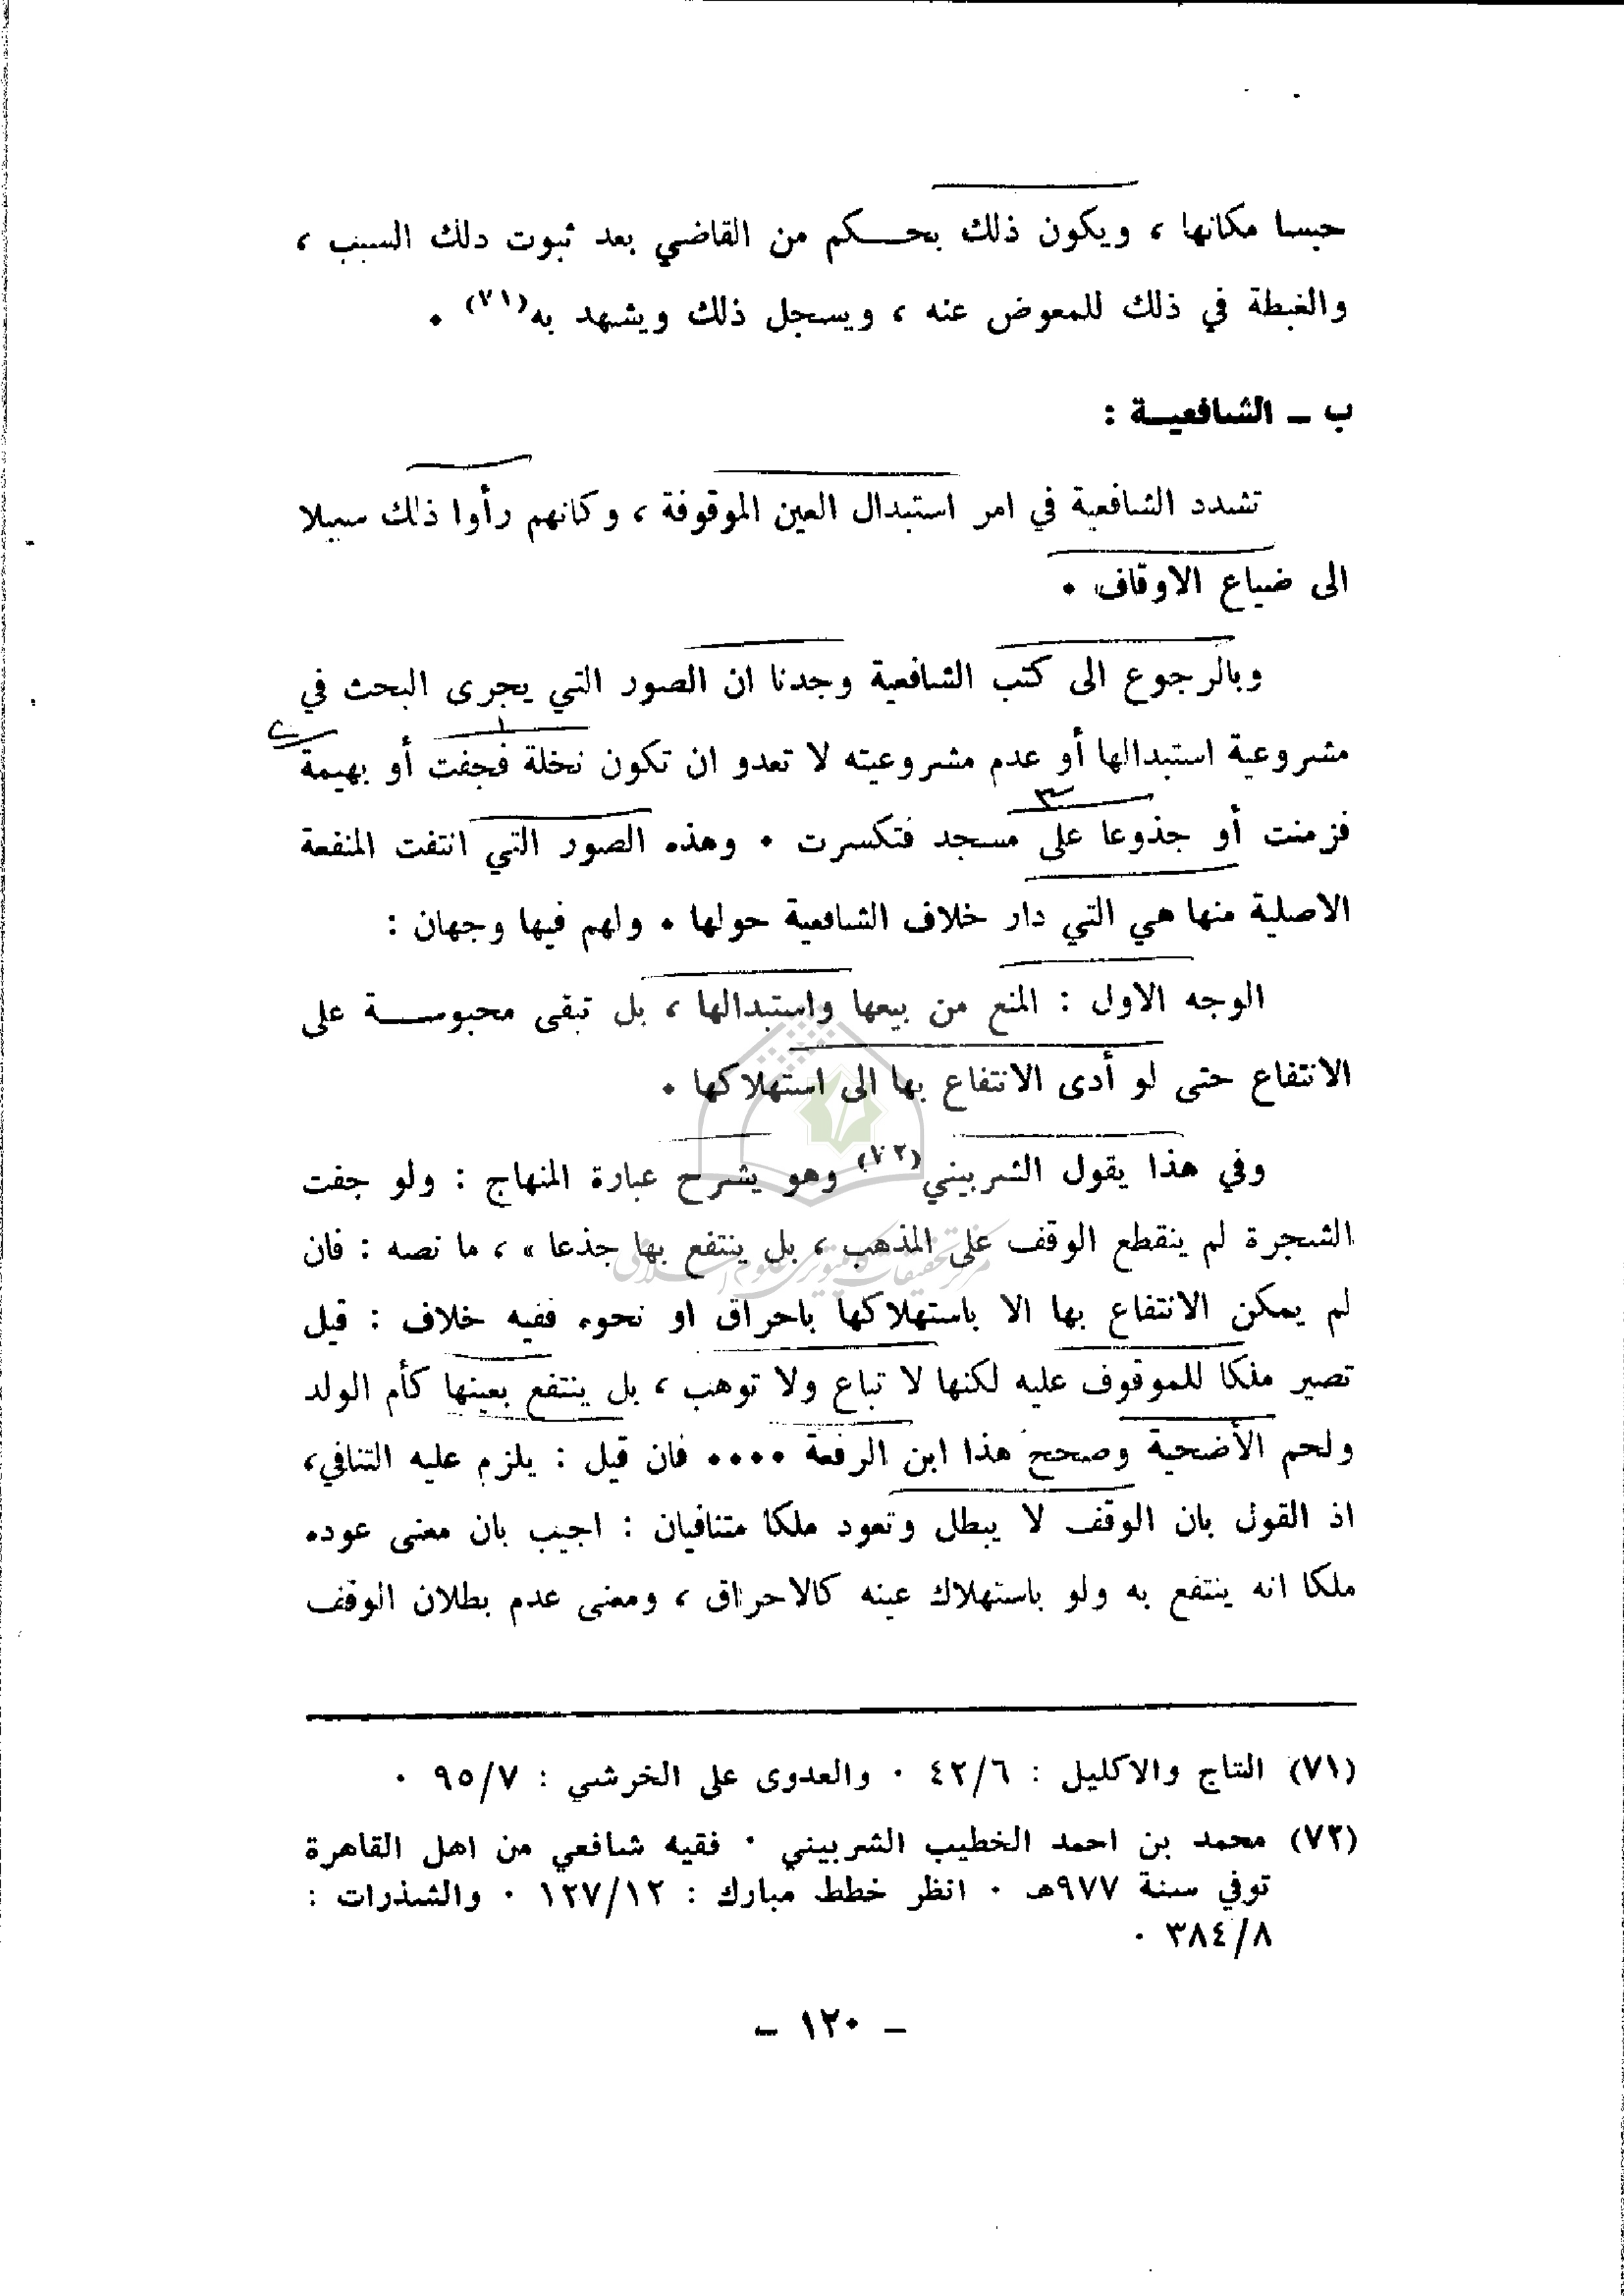 حبسا مكانها ، ويكون ذلك بحـــكم من القاضي بعد ثبوت دلك السبب ،
والغبطة في ذلك للمعوض عنه ، ويسجل ذلك ويشهد به(٧١) .
ب ـ الشافعيـة :
تشدد الشافعية في امر استبدال العين الموقوفة ، وكانهم رأوا ذلك سبيلا
الى ضياع الاوقاف .
وبالرجوع الى كتب الشافعية وجدنا ان الصور التي يجرى البحث في
مشروعية استبدالها أو عدم مشروعيته لا تعدو ان تكون نخلة فجفت أو بهيمة
فزمنت أو جذوعا على مسجد فتكسرت . وهذه الصور التي انتفت المنفعة
الاصلية منها هي التي دار خلاف الشافعية حولها . ولهم فيها وجهان :
الوجه الاول : المنع من بيعها واستبدالها ، بل تبقى محبوســـة على
الانتفاع حتى لو أدى الانتفاع بها الى استهلاكها .
وفي هذا يقول الشربيني(٧٢) وهو يشرح عبارة المنهاج : ولو جفت
الشجرة لم ينقطع الوقف على المذهب ، بل ينتفع بها جذعا » ، ما نصه : فان
لم يمكن الانتفاع بها الا باستهلاكها باحراق او نحوه ففيه خلاف : قيل
تصير ملكا للموقوف عليه لكنها لا تباع ولا توهب ، بل ينتفع بعينها كأم الولد
ولحم الأضحية وصحح هذا ابن الرفعة .... فان قيل : يلزم عليه التنافي،
اذ القول بان الوقف لا يبطل وتعود ملكا متنافيان : اجيب بان معنى عوده
ملكا انه ينتفع به ولو باستهلاك عينه كالاحراق ، ومعنى عدم بطلان الوقف
(٧١) التاج والاكليل : ٤٢/٦ . والعدوى على الخرشي : ٩٥/٧ .
(٧٢) محمد بن احمد الخطيب الشربيني . فقيه شافعي من اهل القاهرة
توفي سنة ٩٧٧هـ . انظر خطط مبارك : ١٢٧/١٢ . والشذرات :
٣٨٤/٨ .
ـ ١٢٠ ـ